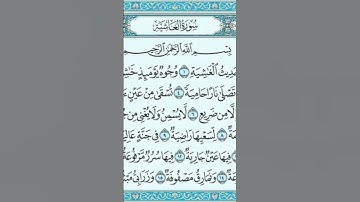 سورة الغاشية
بسم الله الرحمن الرحيم
ديث الغشية ۝١ وجوه يومئذ خش
تصلى نارا حامية ۝٤ تسقى من عين
لا من ضريع ۝٦ لا يسمن ولا يغنى من
لسعيها راضية ۝٩ فى جنة عالي
فيها عين جارية ۝١٢ فيها سرر مرفوعة
ونمارق مصفوفة ۝١٥ وزرابى مب